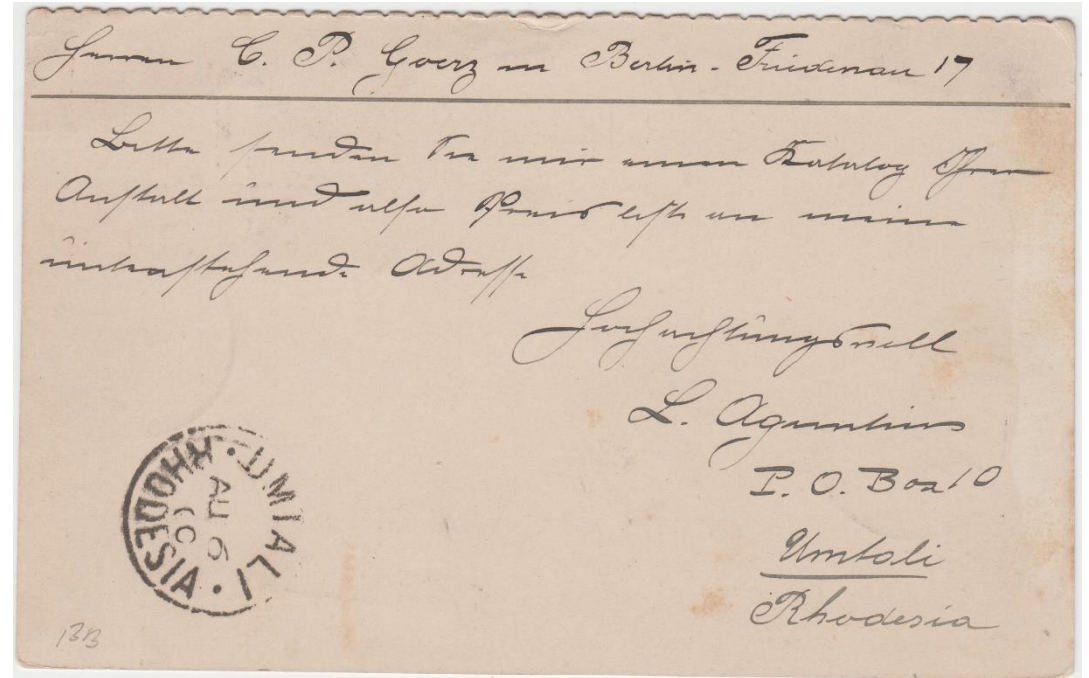 Herrn C. P. Goerz in Berlin-Friedenau 17
Bitte senden Sie mir einen Katalog Ihrer
Anstalt und also Preisliste an meine
untenstehende Adresse
Hochachtungsvoll
L.
P. O. Box 10
Umtali
Rhodesia
UMTALI · RHODESIA ·
AU 6
00
BB